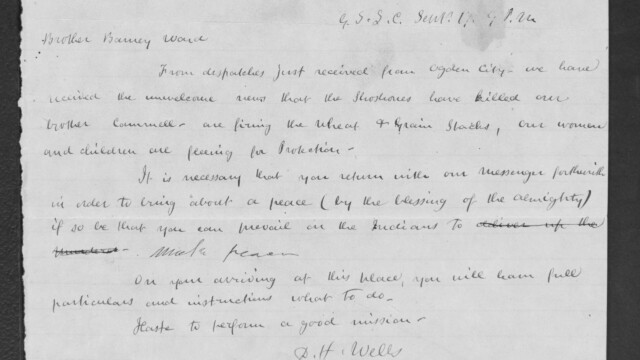 G. S. L. C. Sept. 17. 9 P. M
Brother Barney Ward
From dispatches just received from Ogden City - we have
received the unwelcome news that the Shoshones have killed our
brother - are firing the wheat & Grain Stacks, our women
and children are fleeing for Protection -
It is necessary that you return with our messenger forthwith
in order to bring about a peace (by the blessing of the almighty)
if so be that you can prevail on the Indians to deliver up the
murderer - make peace
On your arriving at this place, you will learn full
particulars and instructions what to do -
Haste to perform a good mission -
D. H. Wells